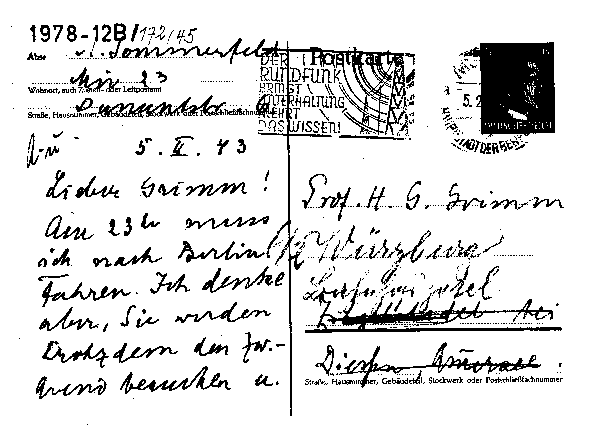 1978-12B/172/45
Postkarte
Abs: A. Sommerfeld
Mü 23
Wohnort, auch Zustell- oder Leitpostamt
Dunantstr. 6
Straße, Hausnummer, Gebäudeteil, Stockwerk oder Postschließfachnummer
DER
RUNDFUNK
BRINGT
UNTERHALTUNG
LEHRT
DAS WISSEN!
5.2
HAUPTSTADT DER BEWE
5. II. 43
Lieber Grimm!
Am 23ten muss
ich nach Berlin
fahren. Ich denke
aber, Sie werden
trotzdem den
besuchen u.
Prof. H. G. Grimm
Würzburg
Bahnhofhotel
bei
Diessen Ammersee.
Straße, Hausnummer, Gebäudeteil, Stockwerk oder Postschließfachnummer